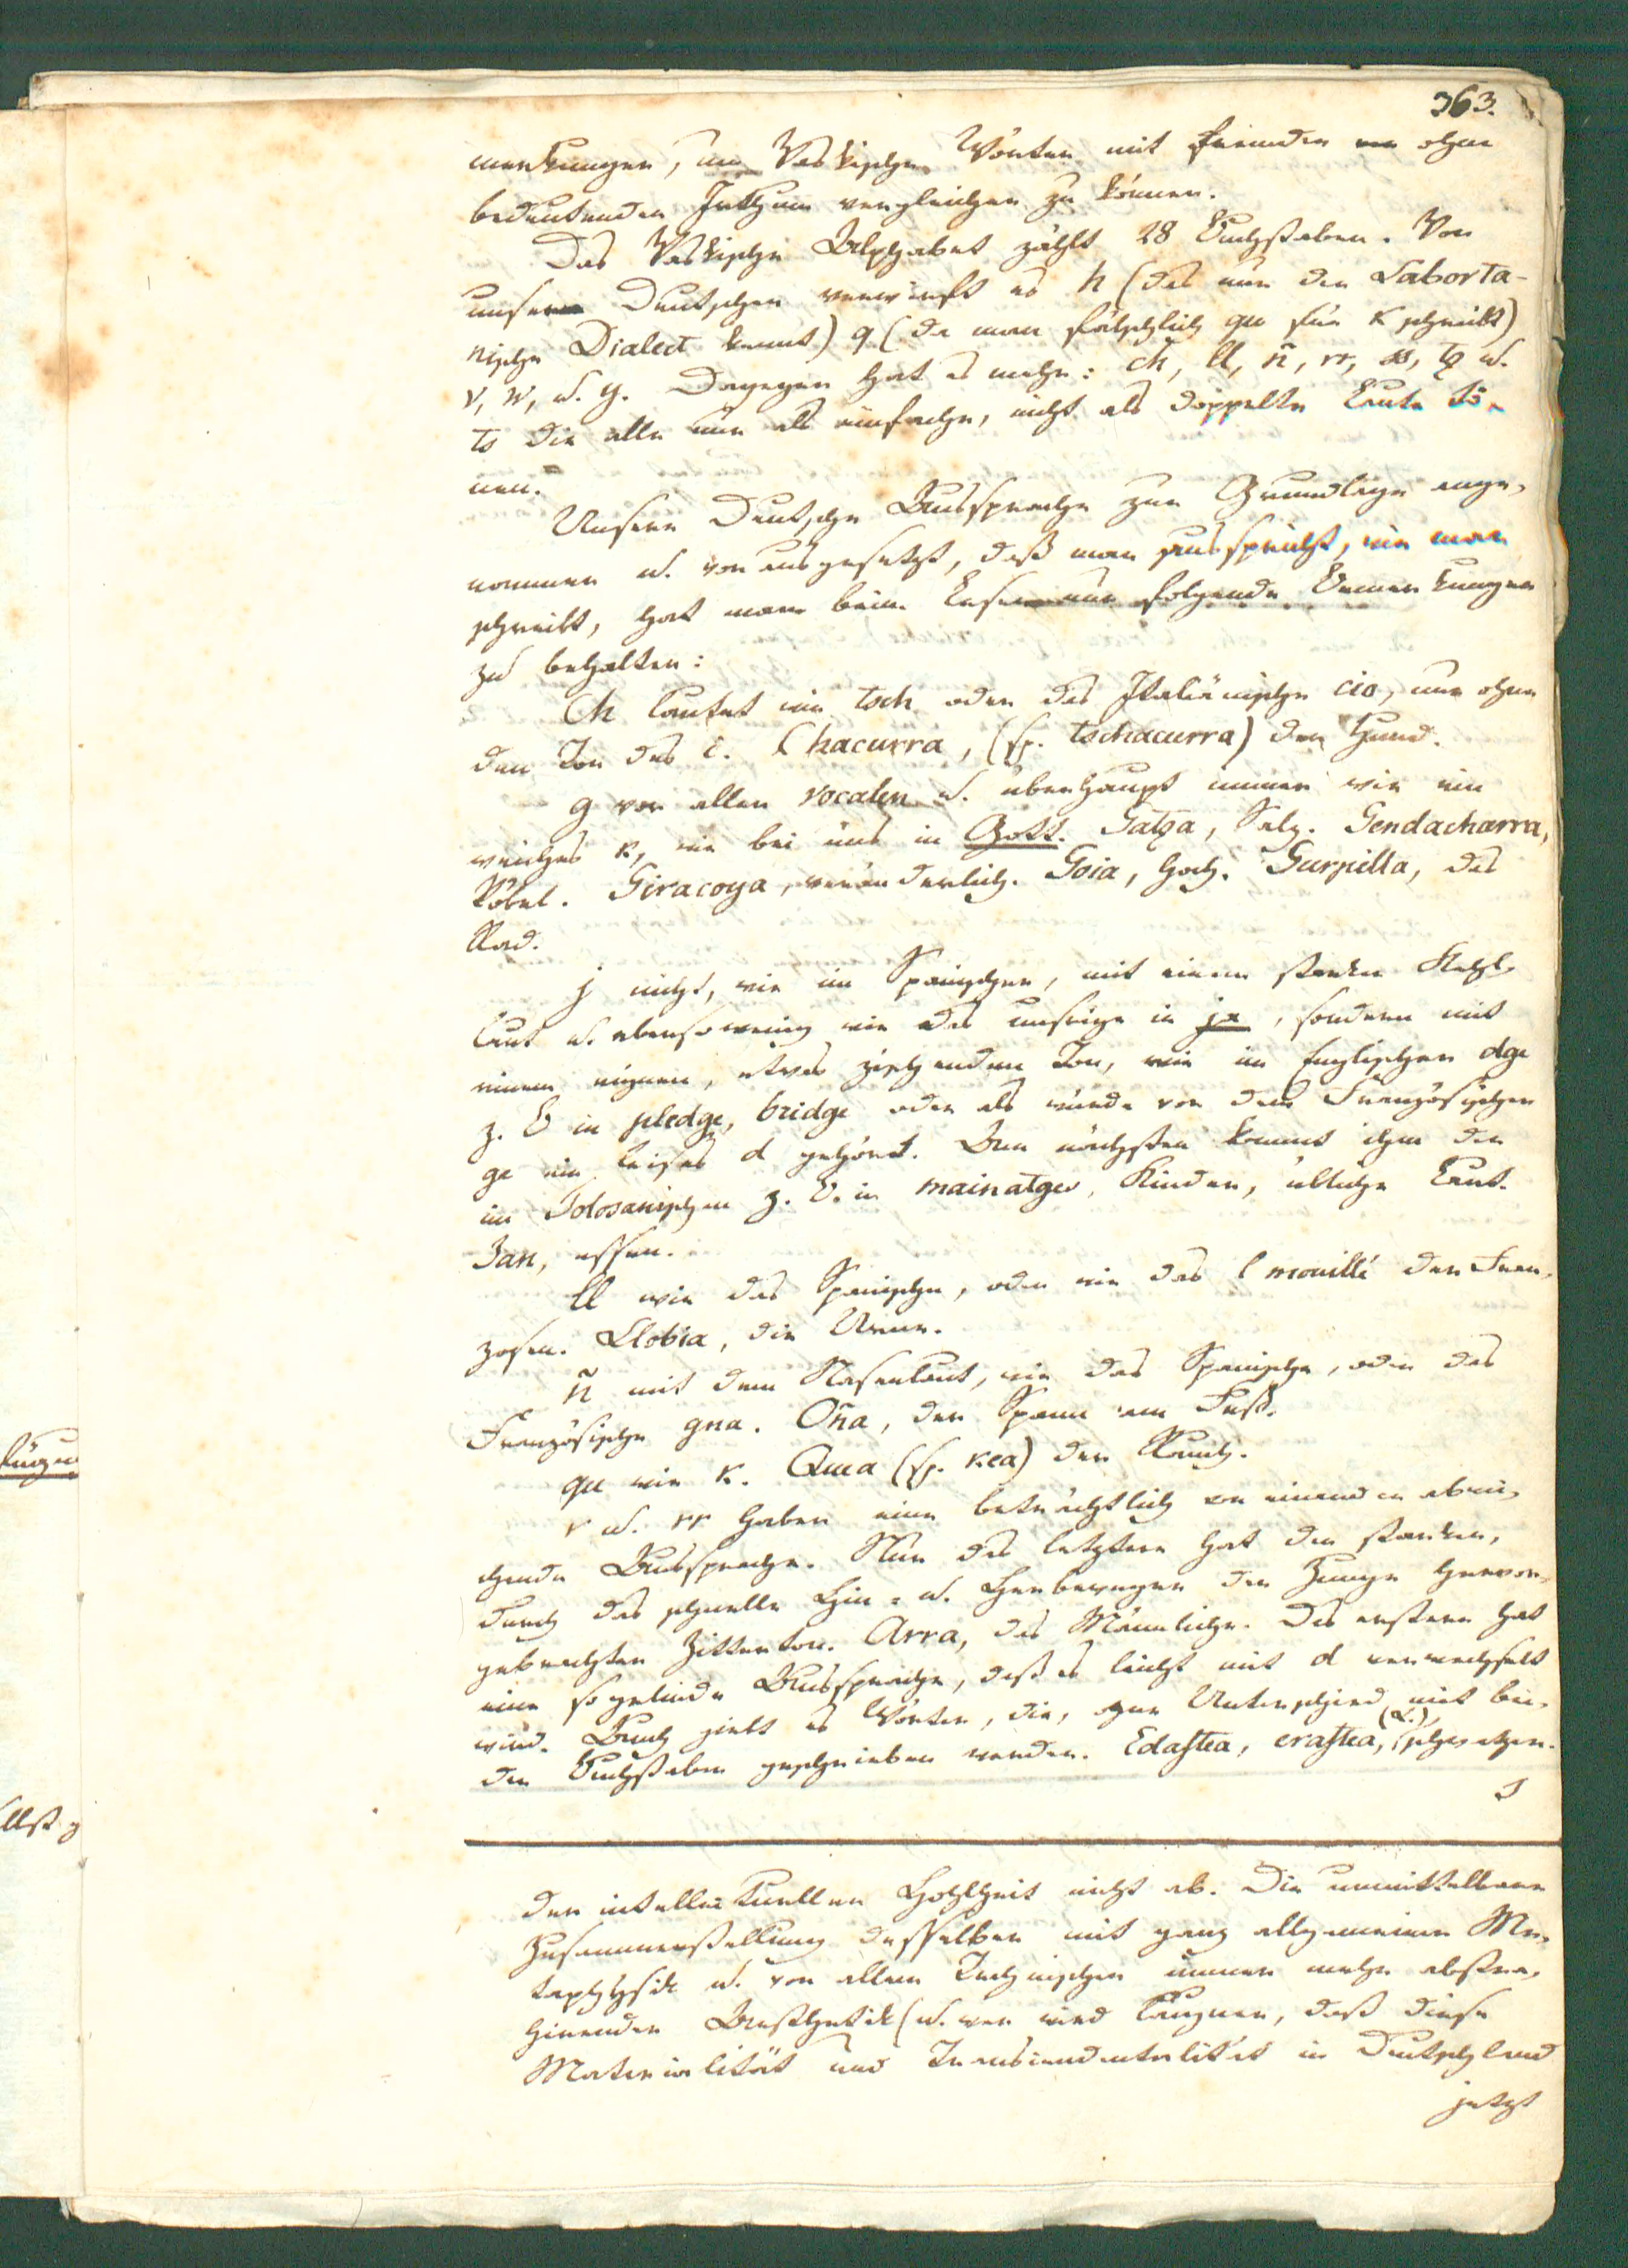 363.
merkungen, um Vaskische Wörter mit fremden ohne
bedeutenden Irrthum vergleichen zu können.
Das Vaskische Alphabet zählt 28 Buchstaben. Von
unsern Deutschen verwirft es h (das nur der Laborta-
nische Dialect kennt) q (da man fälschlich qu für k schreibt)
v, w, u. y. Dagegen hat es mehr: ch, ll, ñ, rr, ss, tz u.
ts die alle nur als einfache, nicht als doppelte Laute tö-
nen.
Unsere Deutsche Aussprache zur Grundlage ange-
nommen u. vorausgesetzt, daß man ausspricht, wie man
schreibt, hat man beim Lesen nur folgende Bemerkungen
zu behalten:
Ch lautet wie tsch oder das Italiänische cio, nur ohne
den Ton des i. Chacurra, (sp. tschacurra) der Hund.
g vor allen vocalen u. überhaupt immer wie ein
weiches k, wie bei uns in Gott. Gatza, Salz. Gendacharra,
Pöbel. Giracoya, veränderlich. Goia, hoch. Gurpilla, das
Rad.
j nicht, wie im Spanischen, mit einem starken Kehl-
laut u. ebensowenig wie das unsrige in ja, sondern mit
einem eignen, etwas zischenden Ton, wie im Englischen dge
z. B in pledge, bridge oder als würde vor dem Französischen
ge ein leises d gehört. Am nächsten kommt ihm der
im Tolosanischen z. B. in mainatges, Kinder, übliche Laut.
Jan, essen.
ll wie das Spanische, oder wie das l mouillé der Fran-
zosen. Llobia, die
ñ mit dem Nasenlaut, wie das Spanische, oder das
Französische gna. Oña, der Spann am Fuß.
qu wie k. Quea (sp. kea) der Rauch.
r u. rr haben eine beträchtlich von einander abwei-
chende Aussprache. Nur das letztere hat den starken,
durch das schnelle Hin- u. Herbewegen der Zunge hervor-
gebrachten Zitterton. Arra, das Männliche. Das erstere hat
eine so gelinde Aussprache, daß es leicht mit d verwechselt
wird. Auch giebt es Wörter, die, ohne Unterschied mit bei-
den Buchstaben geschrieben werden. Edastea, erastea, (L.) schwatzen.
der intellectuellen Hohlheit nicht ab. Die unmittelbare
Zusammenstellung desselben mit ganz allgemeiner Me-
taphysik u. von allem Technischen immer mehr abstra-
hirender Aesthetik (u. wer wird läugnen, daß diese
Materialität und Transcendentalität in Deutschland
jetzt